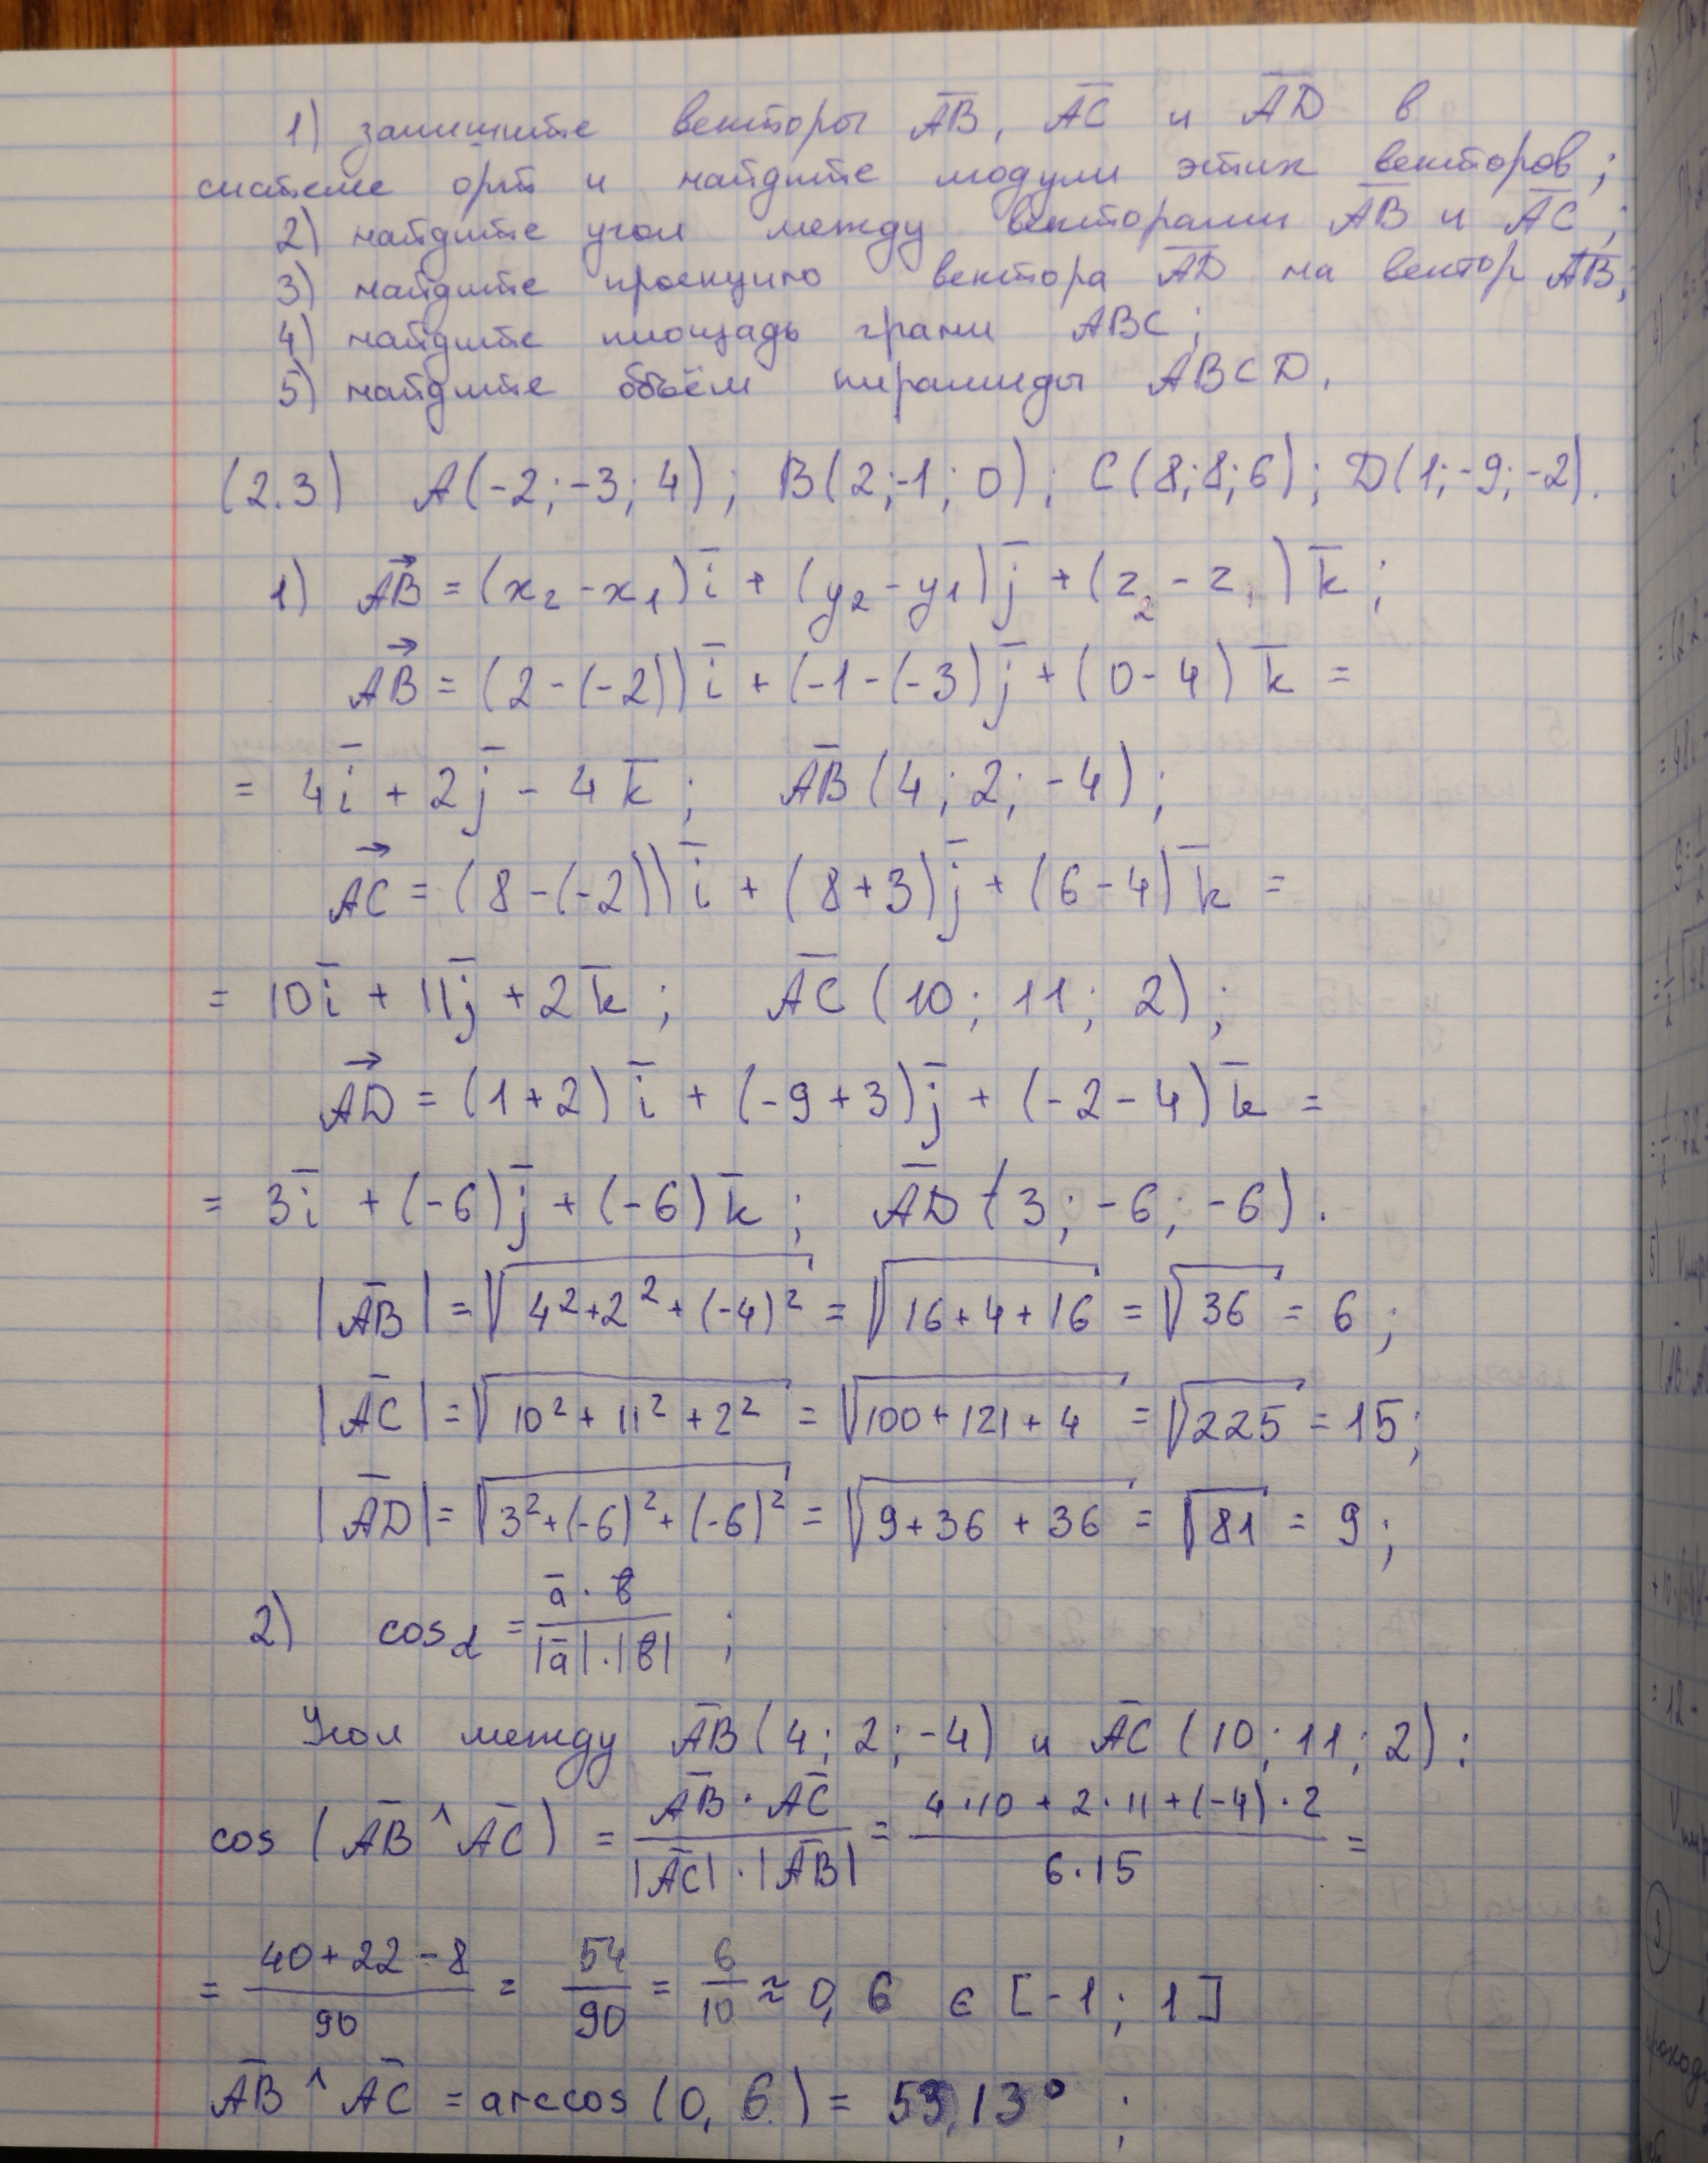 1) запишите векторы A̅B̅, A̅C̅ и A̅D̅ в
системе орт и найдите модули этих векторов;
2) найдите угол между векторами A̅B̅ и A̅C̅;
3) найдите проекцию вектора A̅D̅ на вектор A̅B̅;
4) найдите площадь грани ABC;
5) найдите объём пирамиды ABCD.
(2.3) A(-2;-3;4); B(2;-1;0); C(8;8;6); D(1;-9;-2).
1) AB→ = (x₂-x₁)i̅ + (y₂-y₁)j̅ + (z₂-z₁)k̅;
AB→ = (2-(-2))i̅ + (-1-(-3)j̅ + (0-4)k̅ =
= 4i̅ + 2j̅ - 4k̅; A̅B̅(4;2;-4);
AC→ = (8-(-2))i̅ + (8+3)j̅ + (6-4)k̅ =
= 10i̅ + 11j̅ + 2k̅; A̅C̅(10;11;2);
AD→ = (1+2)i̅ + (-9+3)j̅ + (-2-4)k̅ =
= 3i̅ + (-6)j̅ + (-6)k̅; A̅D̅(3;-6;-6).
|A̅B̅| = √(4²+2²+(-4)²) = √(16+4+16) = √36 = 6;
|A̅C̅| = √(10²+11²+2²) = √(100+121+4) = √225 = 15;
|A̅D̅| = √(3²+(-6)²+(-6)²) = √(9+36+36) = √81 = 9;
2) cosα = (a̅·в̅)/(|a̅|·|в̅|);
Угол между A̅B̅(4;2;-4) и A̅C̅(10;11;2):
cos(A̅B̅^A̅C̅) = (A̅B̅·A̅C̅)/(|A̅C̅|·|A̅B̅|) = (4·10+2·11+(-4)·2)/(6·15) =
= (40+22-8)/90 = 54/90 = 6/10 ≈ 0,6 ∈ [-1;1]
A̅B̅^A̅C̅ = arccos(0,6) = 53,13°;